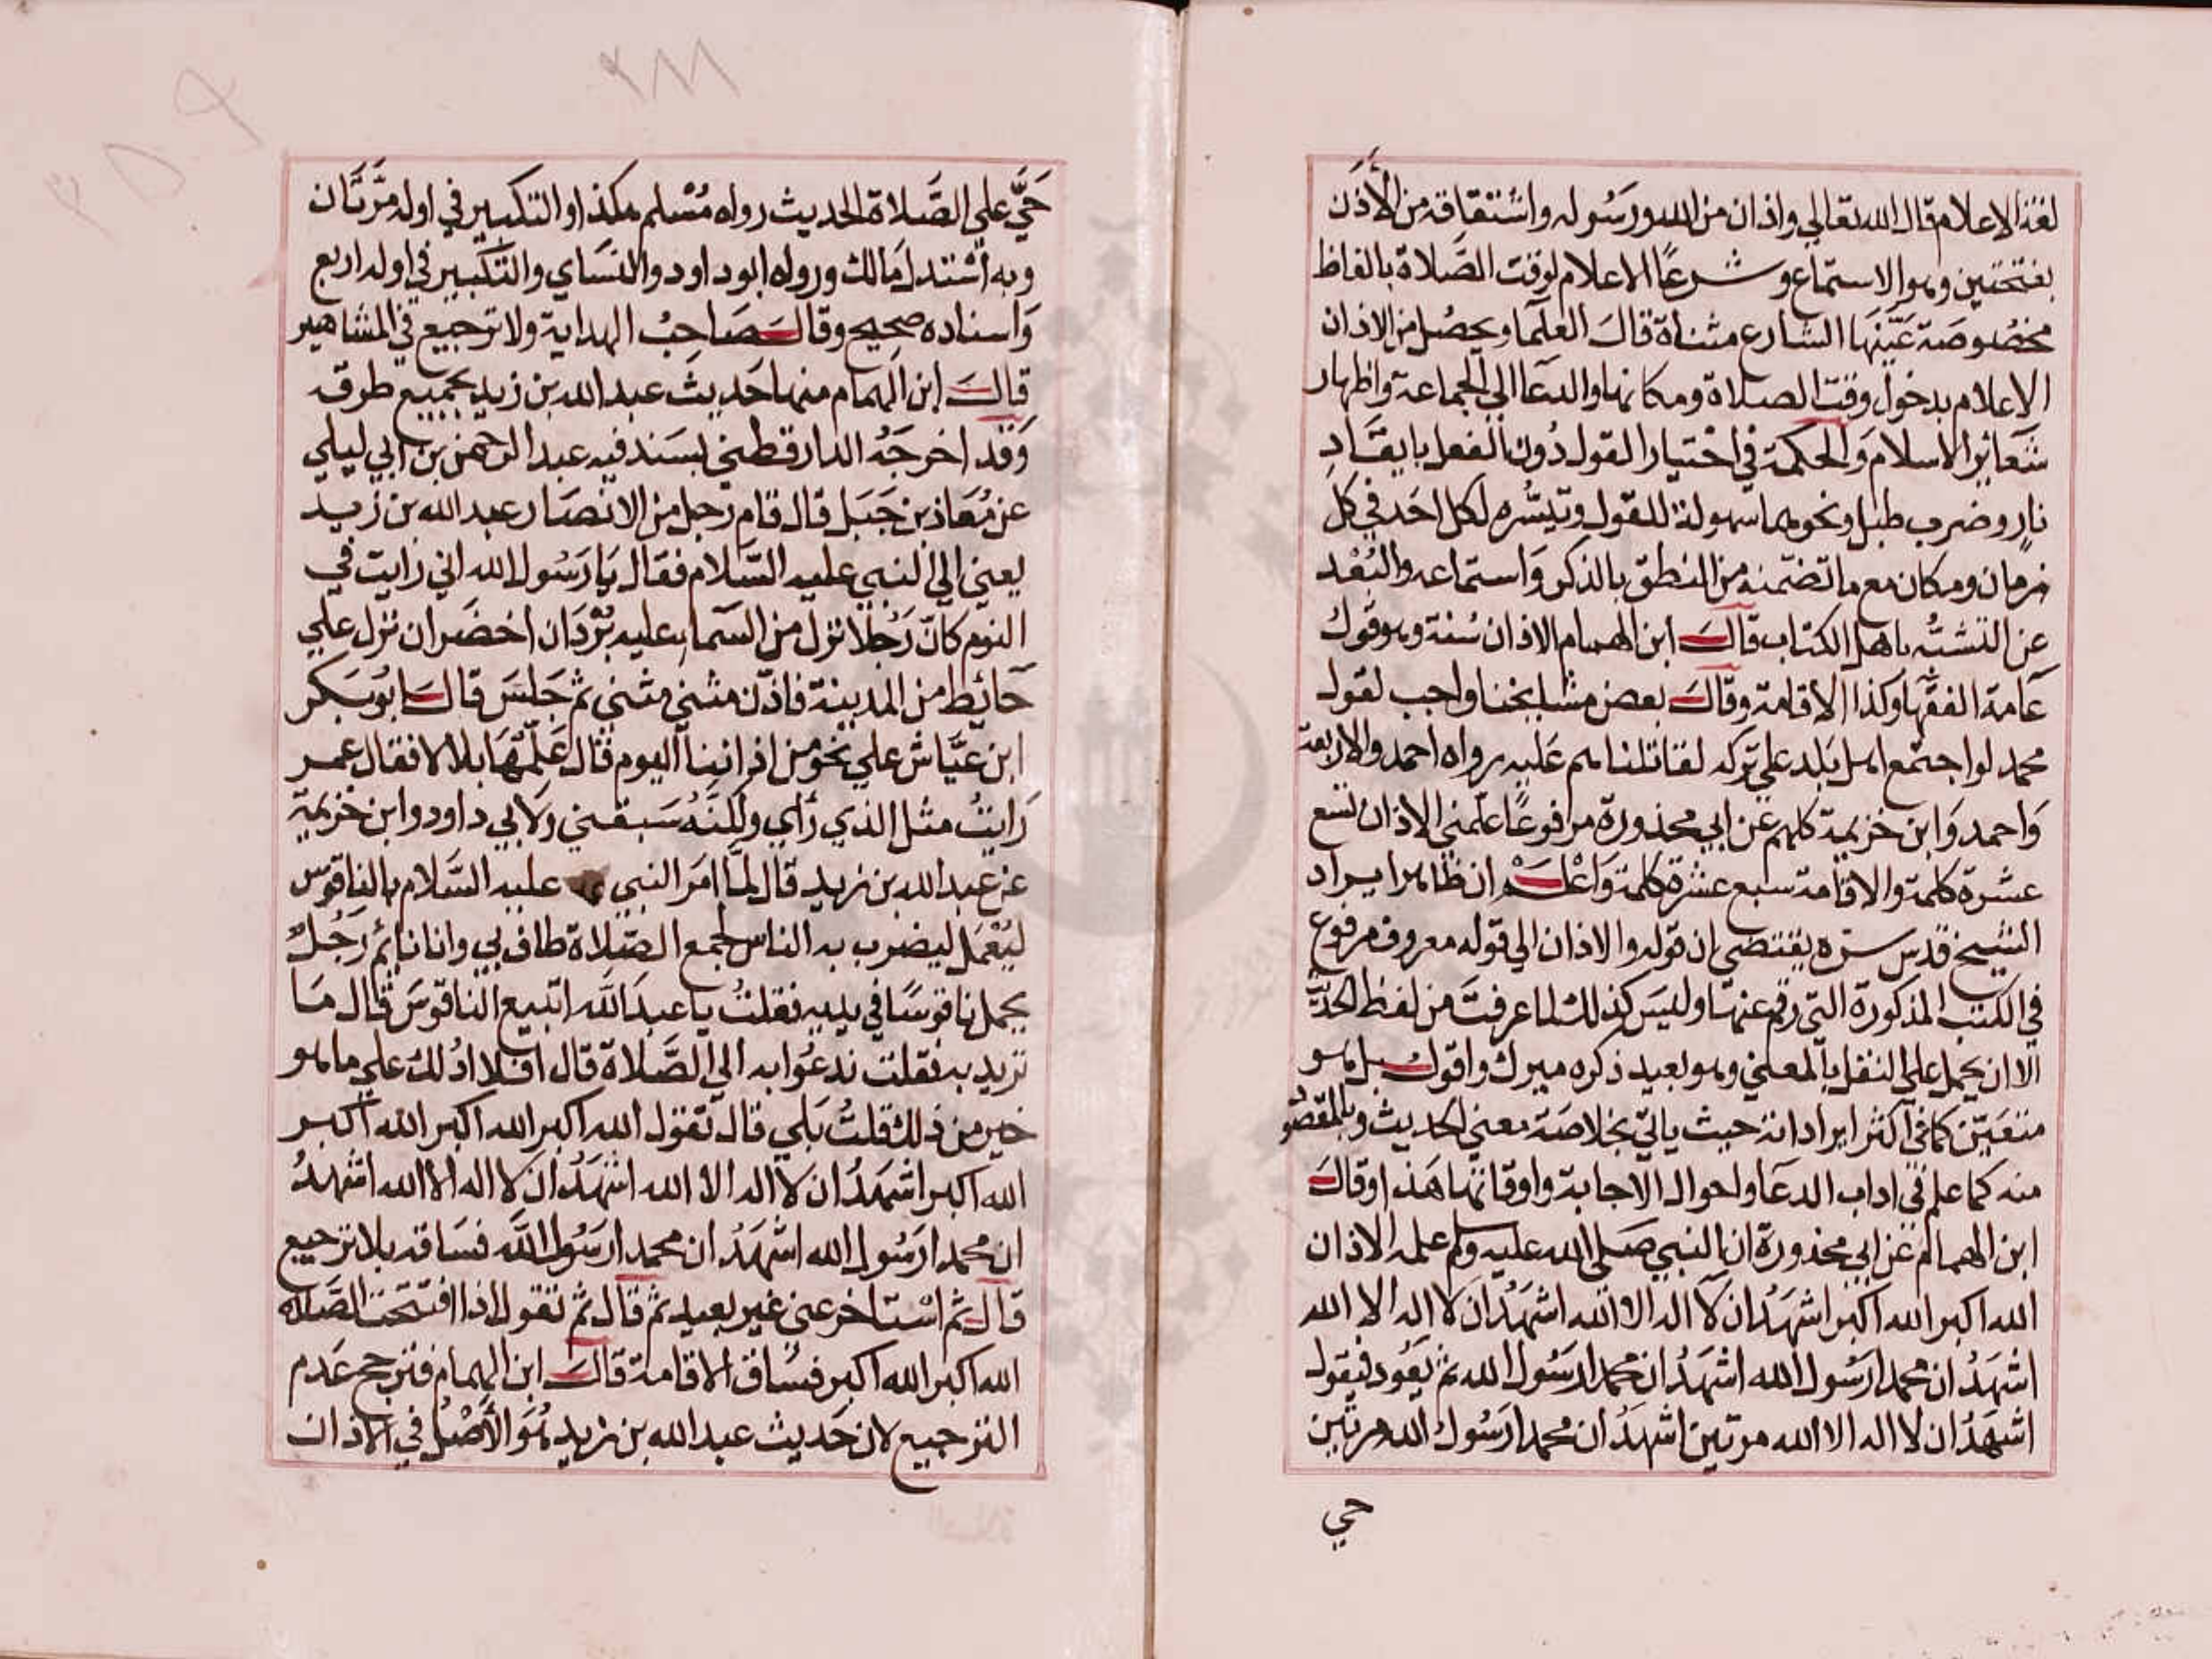 لغة الاعلام قال الله تعالي واذان من الله ورسوله واشتقاقه من الأَذَن
بفتحتين وهو الاستماع وشرعًا الاعلام لوقت الصَّلاة بالفاظ
مخصُوصَة عَيَّنَهَا الشارع مثناة قالَ العلَما ويحصُل من الاذان
الاعلام بدخول وقت الصلاة ومكانها والدعَا الي الجماعة واظهار
شعائر الاسلام وَالحكمة في اختيار القول دُون الفعل بايقَادِ
نارٍ وضرب طبل ونحوهما سهولة القول وتيَسُّره لكل احَد في كل
زمان ومكان مع ما تضمنه من النطق بالذكر وَاستماعه والبُعْد
عن التشبُّه باهل الكتاب قالَ ابن الهمام الاذان سُنة وهو قول
عَامة الفقهَا وكذا الاقامة وقالَ بعض مشايخنا واجب لقول
محمد لو اجتمع اهل بَلد علي تركه لقاتلناهم عَليه رواه احمد والاربعة
وَاحمد وَابن خزيمة كلهم عن ابي محذورة مرفوعًا علَّمني الاذان تسع
عشرة كلمة والاقامة سبع عشرة كلمة وَاعْلَمْ ان ظاهر ايراد
الشيخ قدس سره يقتضي ان قوله والاذان الي قوله معروف مرفوع
في الكتب المذكورة التي رقم عنهَا وليسَ كذلك لما عرفتَ من لفظ الحديث
الا ان يحمل علي النقل بالمعني وهو بعيد ذكره ميرك واقول بل هو
متعَيّن كما في اكثر ايراداته حيث ياتي بخلاصَة معني الحديث وبالمقصود
منه كما علم في اداب الدعَا واحوال الاجابة واوقاتها هَذا وقالَ
ابن الهمام عن ابي محذورة ان النبي صَلي الله عليه وسلم علمه الاذان
الله اكبر الله اكبر اشهَدُ ان لا اله الا الله اشهَدُ ان لا اله الا الله
اشهَدُ ان محمدا رَسُول الله اشهَدُ ان محمدا رَسُول الله ثم يَعُود فيقول
اشهَدُ ان لا اله الا الله مرتين اشهَدُ ان محمدا رَسُول الله مرتين
حي
حَيَّ علي الصَّلاة الحديث رواه مُسْلم هكذا والتكبير في اوله مَرَّتَان
وبه اسْتدل مَالك ورواه ابو داود والنسَاي والتكبير في اوله اربع
وَاسناده صحيح وقالَ صَاحبُ الهداية ولا ترجيع في المشاهير
قالَ ابن الهمام منها حَديث عبد الله بن زيد بجميع طرقه
وَقد اخرجَهُ الدارقطني بسَند فيه عبد الرحمن بن ابي ليلي
عن مُعَاذ بن جَبَل قال قام رَجل من الانصَار عبد الله بن زيد
يعني الي النبي عليه السَّلام فقال يَا رَسُول الله اني رَايت في
النوم كانّ رَجُلا نزل من السَّما عليه بُرْدَان اخضَران نزل علي
حَائط من المدينة فاذّن مثني مثني ثم جَلسَ قالَ ابُو بَكر
ابن عيَّاش علي نحو من اذاننا اليوم قال عَلّمْهَا بلالا فقال عمر
رَايتُ مثل الذي رَأي ولكنّهُ سَبقني وَلابي داود وابن خزيمة
عن عبد الله بن زيد قال لمَّا امَر النبي عليه السَّلام بالناقوس
ليُعْمَل ليضرب به الناس لجمع الصَّلاة طاف بي وانا نائم رَجُلٌ
يحمل ناقوسًا في يديه فقلتُ يا عبدَ الله اتبيع الناقوسَ قال مَا
تريد به فقلت ندعُوا به الي الصَّلاة قال افلا ادُلك علي ما هو
خير من ذلك قلتُ بَلي قال تقول الله اكبر الله اكبر الله اكبر
الله اكبر اشهَدُ ان لا اله الا الله اشهَدُ ان لا اله الا الله اشهدُ
ان محمدا رَسُول الله اشهَدُ ان محمدا رَسُول الله فسَاقه بلا ترجيع
قال ثم اسْتاخر عني غير بعيد ثم قال ثم تقول اذا افتتحت الصَّلاة
الله اكبر الله اكبر فسَاق الاقامة قالَ ابن الهمام فترجح عَدم
الترجيع لان حَديث عبد الله بن زيد هُوَ الأَصْلُ في الاذان